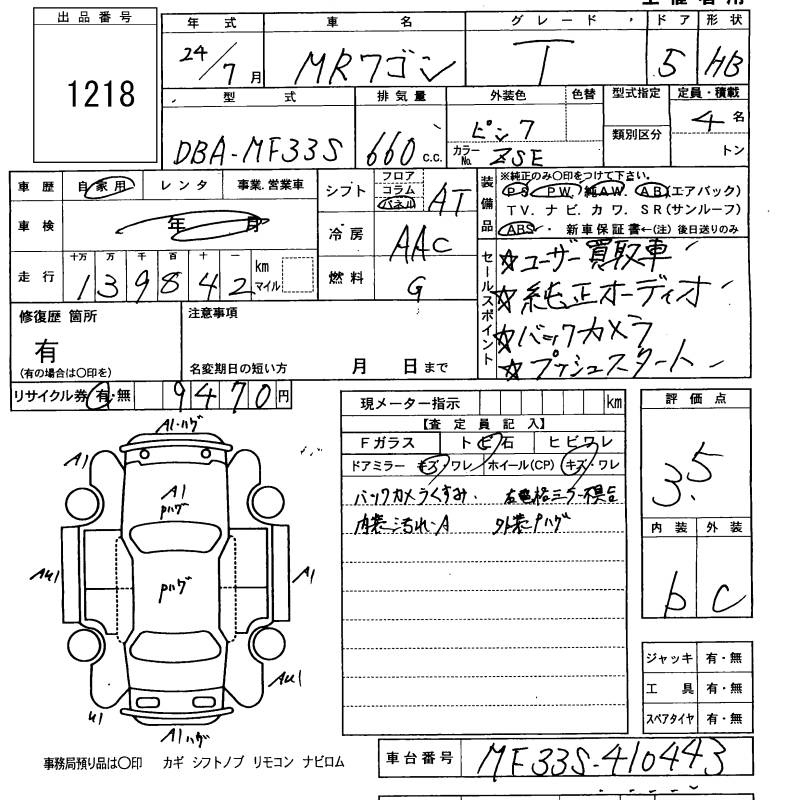 出品番号 年式 車名 グレード ドア 形状
1218 24/7月 MRワゴン T 5 HB
型式 排気量 外装色 色替 型式指定 定員・積載
DBA-MF33S 660 c.c. ピンク 類別区分 4名
カラーNo. ZSE トン
車歴 自家用 レンタ 事業.営業車 シフト フロア コラム パネル AT 装備品 ※純正のみ〇印をつけて下さい。
PS PW 純AW AB(エアバック)
TV.ナビ.カワ.SR(サンルーフ)
車検 年 月 冷房 AAC ABS・ 新車保証書←(注)後日送りのみ
走行 十万 万 千 百 十 一 km マイル 燃料 G セールスポイント
139842
☆ユーザー買取車
☆純正オーディオ
☆バックカメラ
☆プッシュスタート
修復歴 箇所 注意事項
有
(有の場合は〇印を) 名変期日の短い方 月 日まで
リサイクル券 有・無 9470円
現メーター指示 km 評価点
【査定員記入】 3.5
Fガラス トビ石 ヒビワレ
ドアミラー キズ・ワレ ホイール(CP) キズ・ワレ
バックカメラくすみ. 右電格ミラー不具合
内装汚れ・A 外装Pハゲ
内装 外装
b C
A1・ハゲ
A1
A1
Pハゲ
AU1 Pハゲ A1
AU1
U1
A1ハゲ
ジャッキ 有・無
工具 有・無
スペアタイヤ 有・無
事務局預り品は〇印 カギ シフトノブ リモコン ナビロム
車台番号 MF33S-410443